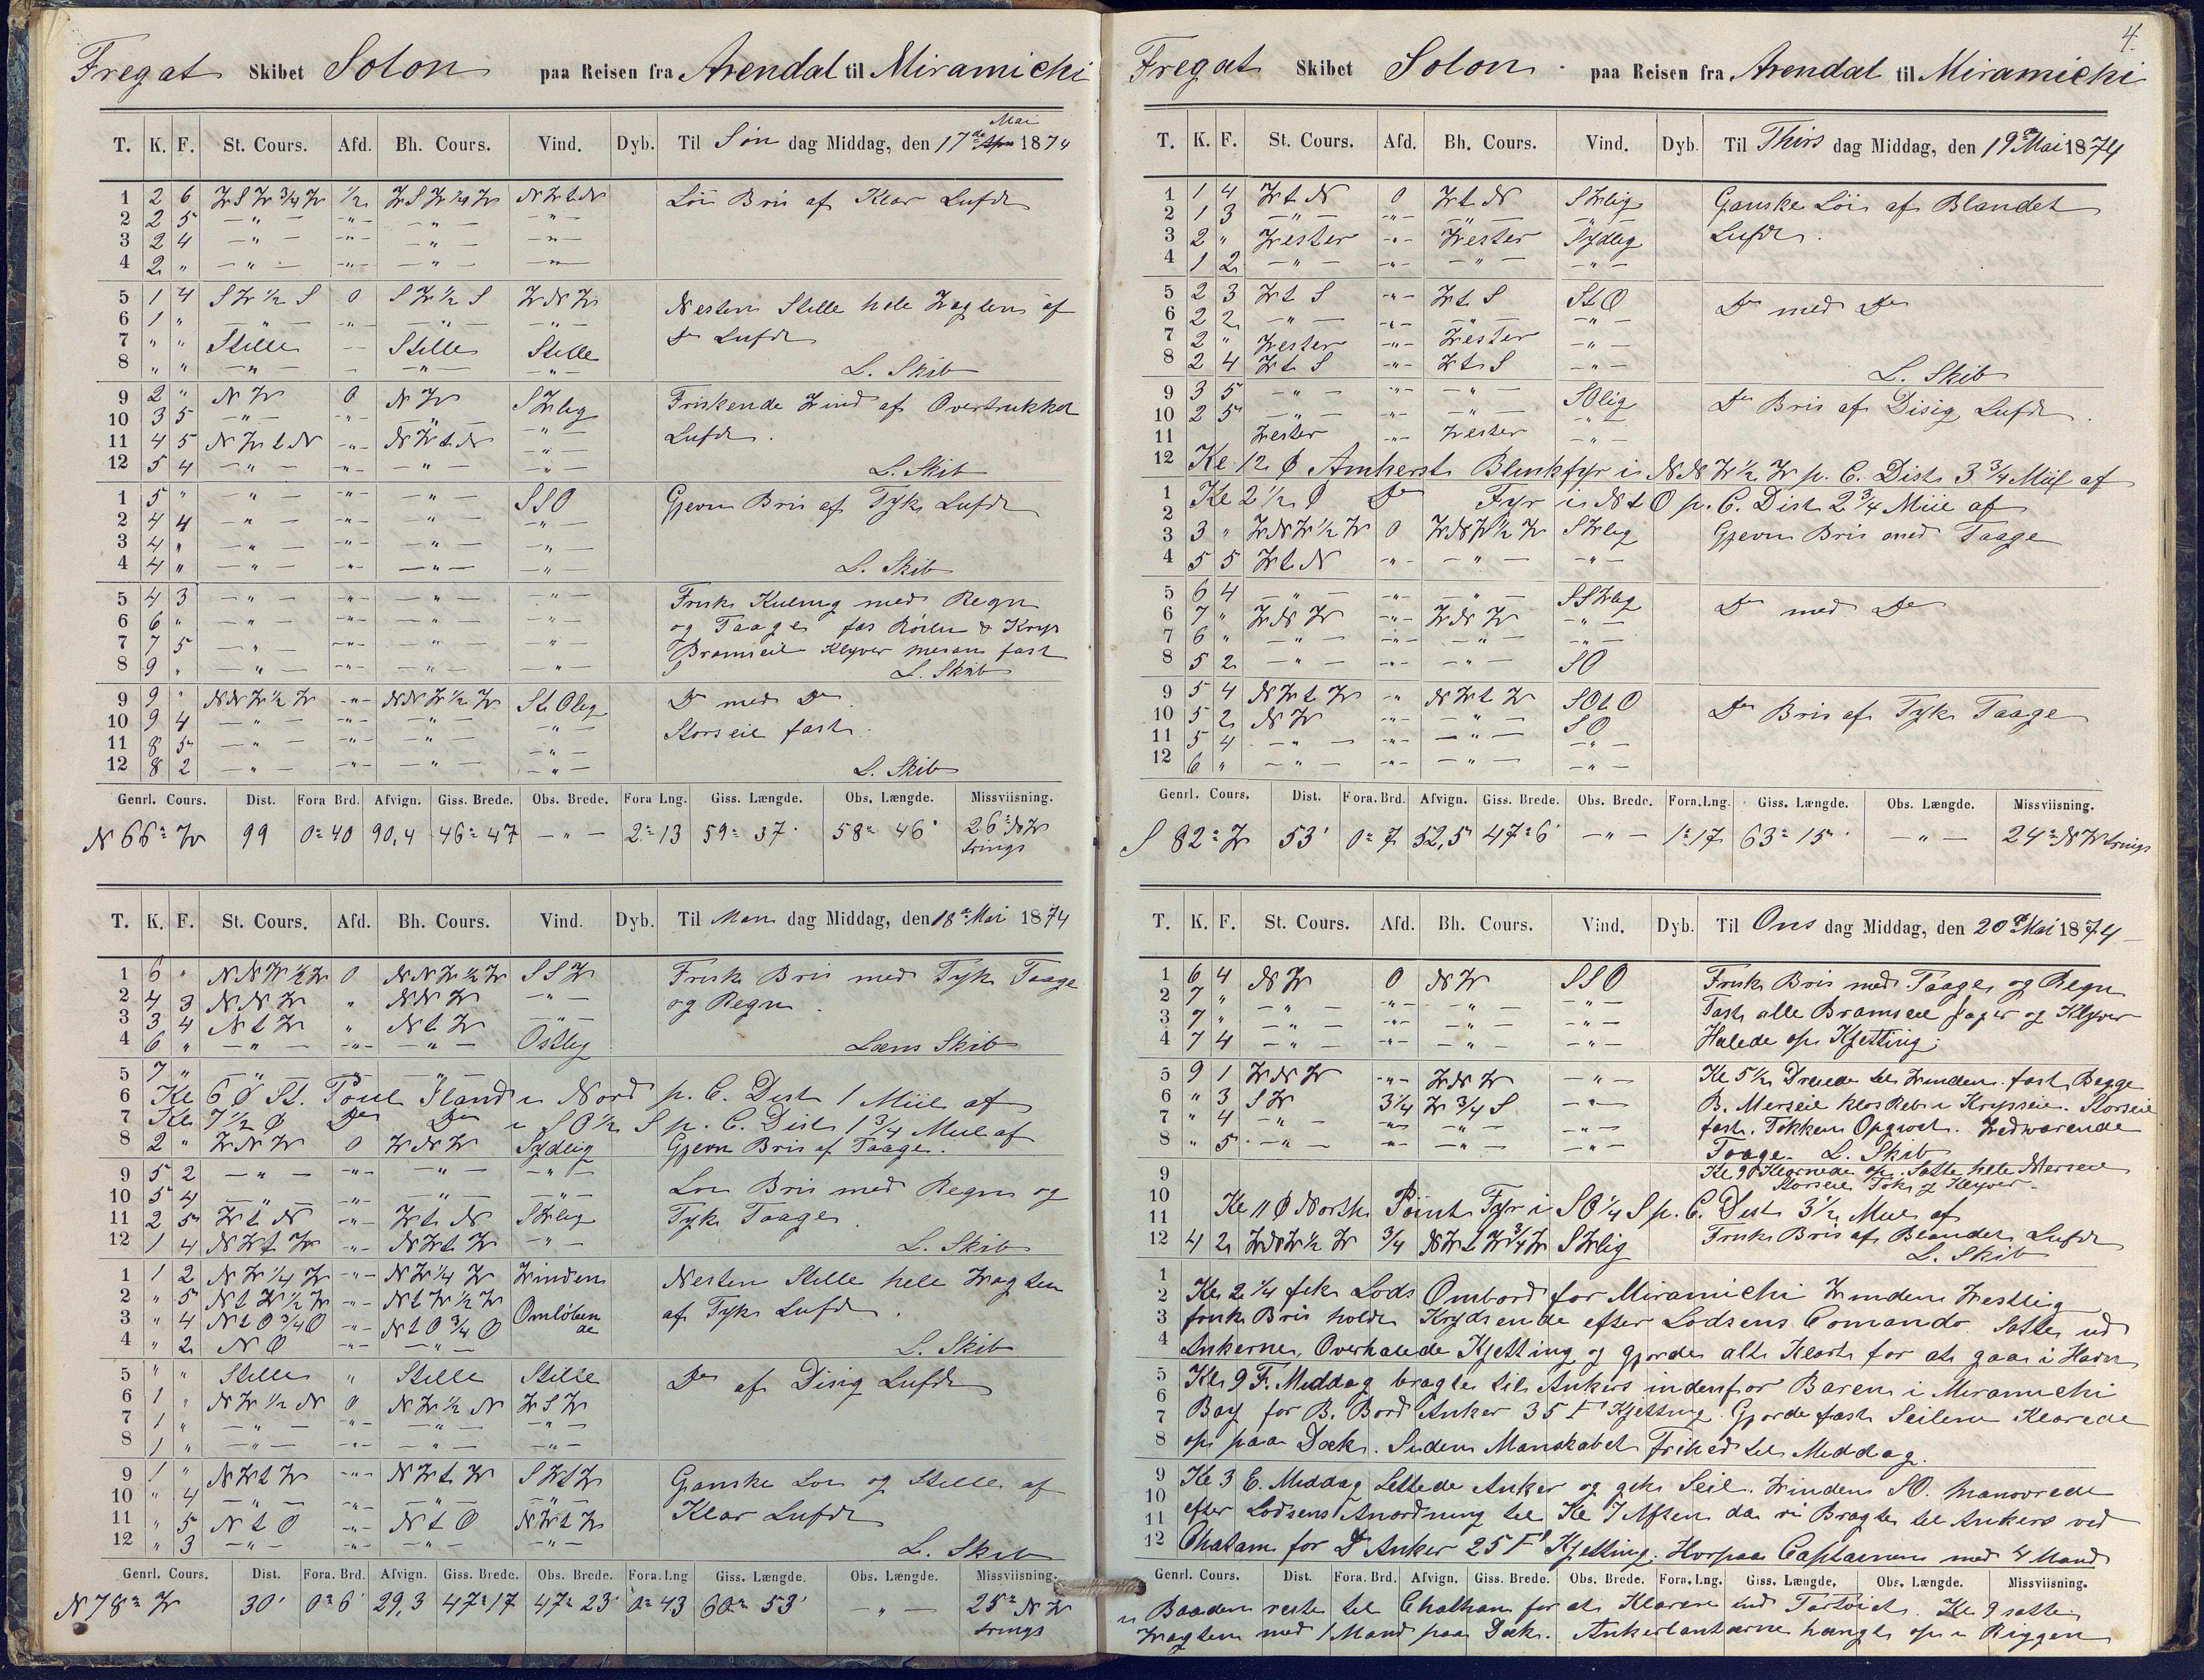 Fregat Skibet Solon paa Reisen fra Arendal til Miramichi
T. K. F. St. Cours. Afd. Bh. Cours. Vind. Dyb. Til Søn dag Middag, den 17de Mai 1874
1 2 6 WSW 3/4 W 1/2 WSW 1/2 W NWtN Löi Bris af Klar Luft
2 2 5 — " — - " - — " — — " —
3 2 4 — " — - " - — " — — " —
4 2 " — " — - " - — " — — " —
5 1 4 SW 1/2 S 0 SW 1/2 S WNW Nesten Stille hele Wagten af
6 1 " — " — - " - — " — — " — Do Luft
7 " " Stille — Stille Stille
8 " " — " — - — " — — " — L. Skib
9 2 " NW 0 NW SWlig Friskende Wind af Overtrukket
10 3 5 — " — - " - — " — — " — Luft.
11 4 5 NWtN - " - NWtN — " —
12 5 4 — " — - " - — " — — " — L. Skib
1 5 " — " — - " - — " — SSO Gjevn Bris af Tyk Luft
2 4 4 — " — - " - — " — — " —
3 4 " — " — - " - — " — — " —
4 4 " — " — - " - — " — — " — L. Skib
5 4 3 — " — - " - — " — — " — Frisk Kuling med Regn
6 6 " — " — - " - — " — — " — og Taage fas Röilen & Kryp
7 7 5 — " — - " - — " — " Bramseil Klyver mesan fast
8 9 " " — - " - — " — — " — L. Skib
9 9 " NNW 1/2 W - " - NNW 1/2 W StOlig Do med Do
10 9 4 — " — - " - — " — — " — Storseil fast.
11 8 5 — " — - " - — " — — " —
12 8 2 — " — - " - — " — — " — L. Skib
Genrl. Cours. Dist. Fora Brd. Afvign. Giss. Brede. Obs. Brede. Fora Lng. Giss. Længde. Obs. Længde. Missviisning.
N 66° W 99 0° 40 90,4 46° 47 — " — 2° 13 59° 37' 58° 46' 26° NW
trings
T. K. F. St. Cours. Afd. Bh. Cours. Vind. Dyb. Til Man dag Middag, den 18de Mai 1874
1 6 " NNW 1/2 W 0 NNW 1/2 W SSW Frisk Bris med Tyk Taage
2 4 3 NNW " NNW — " — og Regn.
3 3 4 NtW " NtW — " —
4 6 " — " — - " - — " — Ostlig Læns Skib
5 7 " — " — — " —
6 Kl 6 Ø St. Poul Iland i Nord p. C. Dist 1 Miil af
7 Kl 7 1/2 Ø Do Do i SO 1/2 S p. C. Dist 1 3/4 Miil af
8 2 " WNW 0 WNW Sydlig Gjevn Bris af Taage.
9 5 2 — " — - " - — " — — " — Löi Bris med Regn og
10 5 4 — " — - " - — " — — " — Tyk Taage.
11 2 5 WtN - " - WtN SWlig
12 1 4 NWtW - " - NWtW — " — L. Skib
1 1 2 NW 1/4 W - " - NW 1/4 W Winden Nesten Stille hele Wagten
2 " 5 NtW 1/2 W - " - NtW 1/2 W Omlöben af Tyk Luft.
3 " 4 NtO 3/4 O - " - NtO 3/4 O de
4 " 2 NO - " - — " — L. Skib
5 " " Stille " Stille Stille Do af Disig Luft
6 1 " NW 1/2 N 0 NW 1/2 N WSW
7 1 " — " — - " - — " — — " —
8 1 " — " — - " - — " — — " —
9 1 " NWtW - " - NWtW SWtW Ganske Löi og Stille af
10 " 4 — " — - " - — " — — " — Klar Luft
11 " 5 NtO - " - NtO NWtW
12 " 3 — " — - " - — " — — " — L. Skib
Genrl. Cours. Dist. Fora. Brd. Afvign. Giss. Brede. Obs. Brede. Fora. Lng Giss. Længde. Obs. Længde. Missviisning.
N 78° W 30' 0° 6' 29,3 47° 17 47° 23' 0° 43 60° 53' — " — 25° NW
trings
4.
Fregat Skibet Solon paa Reisen fra Arendal til Miramichi
T. K. F. St. Cours. Afd. Bh. Cours. Vind. Dyb. Til Thirs dag Middag, den 19de Mai 1874
1 1 4 WtN 0 WtN SWlig Ganske Löi af Blandet
2 1 3 — " — - " - — " — — " — Luft.
3 2 " Wester - " - Wester Sydlig
4 1 2 — " — - " - — " — — " —
5 2 3 WtS - " - WtS StO Do med Do
6 2 2 — " — - " - — " — — " —
7 2 " Wester - " - Wester — " —
8 2 4 WtS - " - WtS — " — L. Skib
9 3 5 — " — - " - — " — SOlig Do Bris af Disig Luft.
10 2 5 — " — - " - — " — — " —
11 Wester - " - Wester — " —
12 Kl 12 Ø Amherst Blinkfyr i NNW 1/2 W p. C. Dist 3 3/4 Miil af
1 Kl 2 1/2 Ø Do Fyr i NtO p. C. Dist 2 3/4 Miil af
2
3 3 " WNW 1/2 W 0 WNW 1/2 W SWlig Gjevn Bris med Taage
4 5 5 WtN - " - — " — — " —
5 6 4 — " — - " - — " — SSWlig Do med Do
6 7 " WNW - " - WNW — " —
7 6 " — " — - " - — " — — " —
8 5 2 — " — - " - — " — SO
9 5 4 NWtW " NWtW SOtO Do Bris af Tyk Taage
10 5 2 NW - " - — " — SO
11 5 4 — " — - " - — " — — " —
12 6 " — " — - " - — " — — " —
Genrl. Cours. Dist. Fora. Brd. Afvign. Giss. Brede. Obs. Brede. Fora. Lng. Giss. Længde. Obs. Længde. Missviisning.
S 82° W 53' 0° 7 52,5 47° 6' — " — 1° 17 63° 15' — " — 24° NW trings
T. K. F. St. Cours. Afd. Bh. Cours. Vind. Dyb. Til Ons dag Middag, den 20de Mai 1874
1 6 4 NW 0 NW SSO Frisk Bris med Taage og Regn
2 7 " — " — - " - — " — — " — Fast alle Bramseil Jager og Klyver
3 7 " — " — - " - — " — — " — Halede op Kjetting.
4 7 4 — " — - " - — " — — " —
5 9 1 WNW - " - WNW — " — Kl 5 1/2 Dreiede til Winden fast Begge
6 " 3 SW 3 1/4 W 3/4 S — " — B. Merseil klos Reb i Krypseil. Storseil
7 " 4 — " — - " - — " — — " — fast. Fokken Opgivet. Wedvarende
8 " 5 — " — - " - — " — — " — Taage. L. Skib
9 Kl 9 Ø Klarnede op. Satte hele Merseil
10 Storseil Fok og Klyver
11 Kl 11 Ø North Point Fyr i SO 1/4 S p. C. Dist 3 1/2 Miil af
12 4 2 WNW 1/2 W 3/4 NWtW 3/4 W SWlig Frisk Bris af Blandet Luft
L. Skib
1
2 Kl 2 1/4 fik Lods Ombord for Miramichi Winden Westlig
3 frisk Bris holdt Krydsende efter Lodsens Comando. Satte ud
4 Ankerne, Overhalede Kjetting og gjorde alt Klart for at gaa i Havn
5 Kl 9 F. Middag bragte til Ankers indenfor Baren i Miramichi
6 Bay for B. Bord Anker 35 F Kjetting. Gjorde fast Seilene Klarede
7
8 op paa Dæk. Siden Manskabet Frihed til Middag.
9 Kl 3 E. Middag Lettede Anker og gik Seil. Winden SO. manovrede
10
11 efter Lodsens Anordning til Kl 7 Aften da vi Bragte til Ankers ved
12 Chatam for Do Anker 25 F Kjetting. Hvorpaa Captainen med 4 Mand
Genrl. Cours. Dist. Fora. Brd. Afvign. Giss. Brede. Obs. Brede. Fora. Lng. Giss. Længde. Obs. Længde. Missviisning.
i Baaden reste til Chatham for at Klarere ind Fartöiet. Kl 9 satte
Wagten med 1 Mand paa Dæk. Ankerlanterne hængt op i Riggen